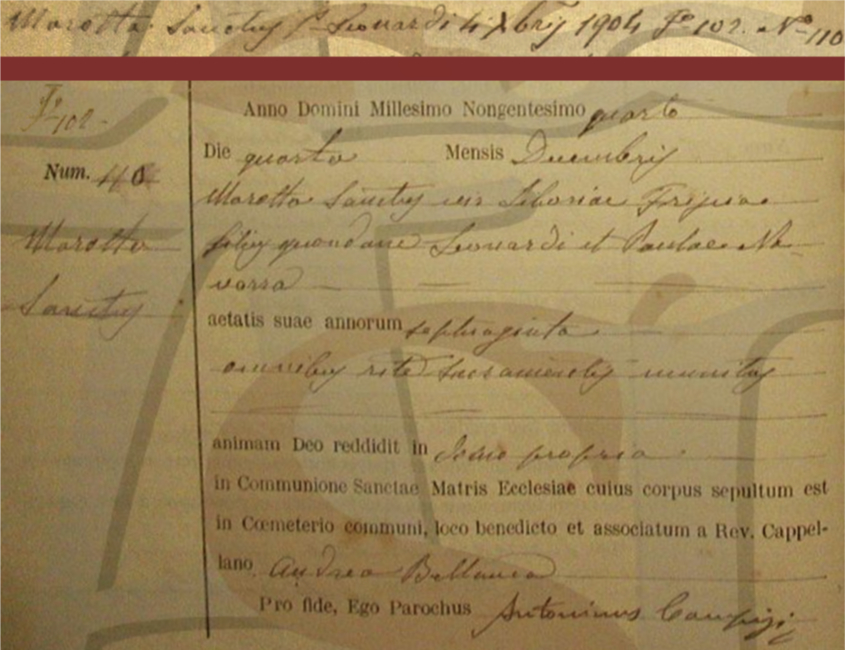 Marotta Sanctus fs Leonardi 4 Xbris 1904 Fo 102. No 110
Fo 102-
Anno Domini Millesimo Nongentesimo quarto
Die quarta Mensis Decembris
Num. 110
Marotta Sanctus vir Liboriae
Marotta
filius quondam Leonardi et Paulae Na
varra
Sanctus
aetatis suae annorum septuaginta
omnibus rite Sacramentis munitus
animam Deo reddidit in domo propria
in Communione Sanctae Matris Ecclesiae cuius corpus sepultum est
in Cœmeterio communi, loco benedicto et associatum a Rev. Cappel-
lano Andrea Bellanca
Pro fide, Ego Parochus Antoninus Campisi